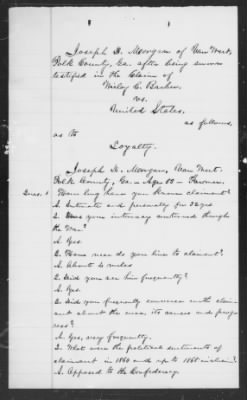 Joseph H. Morgan of Van Wert,
Polk County, Ga. after being sworn
testified in the Claim of
Wiley C. Barber
vs.
United States,
as follows,
as to
Loyalty.
Joseph H. Morgan, Van Wert.
Polk County, Ga - Age 60 - Farmer.
Ques. 1 How long have you known claimant?
A. Intimate and personally for 30 years
2. Was your intimacy continued through
the War?
A. Yes
2. How near do you live to claimant?
A. About 4 miles
2. Did you see him frequently?
A. Yes.
2. Did you frequently converse with claim-
ant about the war, its causes and prog-
ress?
A. Yes, very frequently.
2. What were the political sentiments of
claimant in 1860 and up to 1865 inclusive?
A. Opposed to the Confederacy.